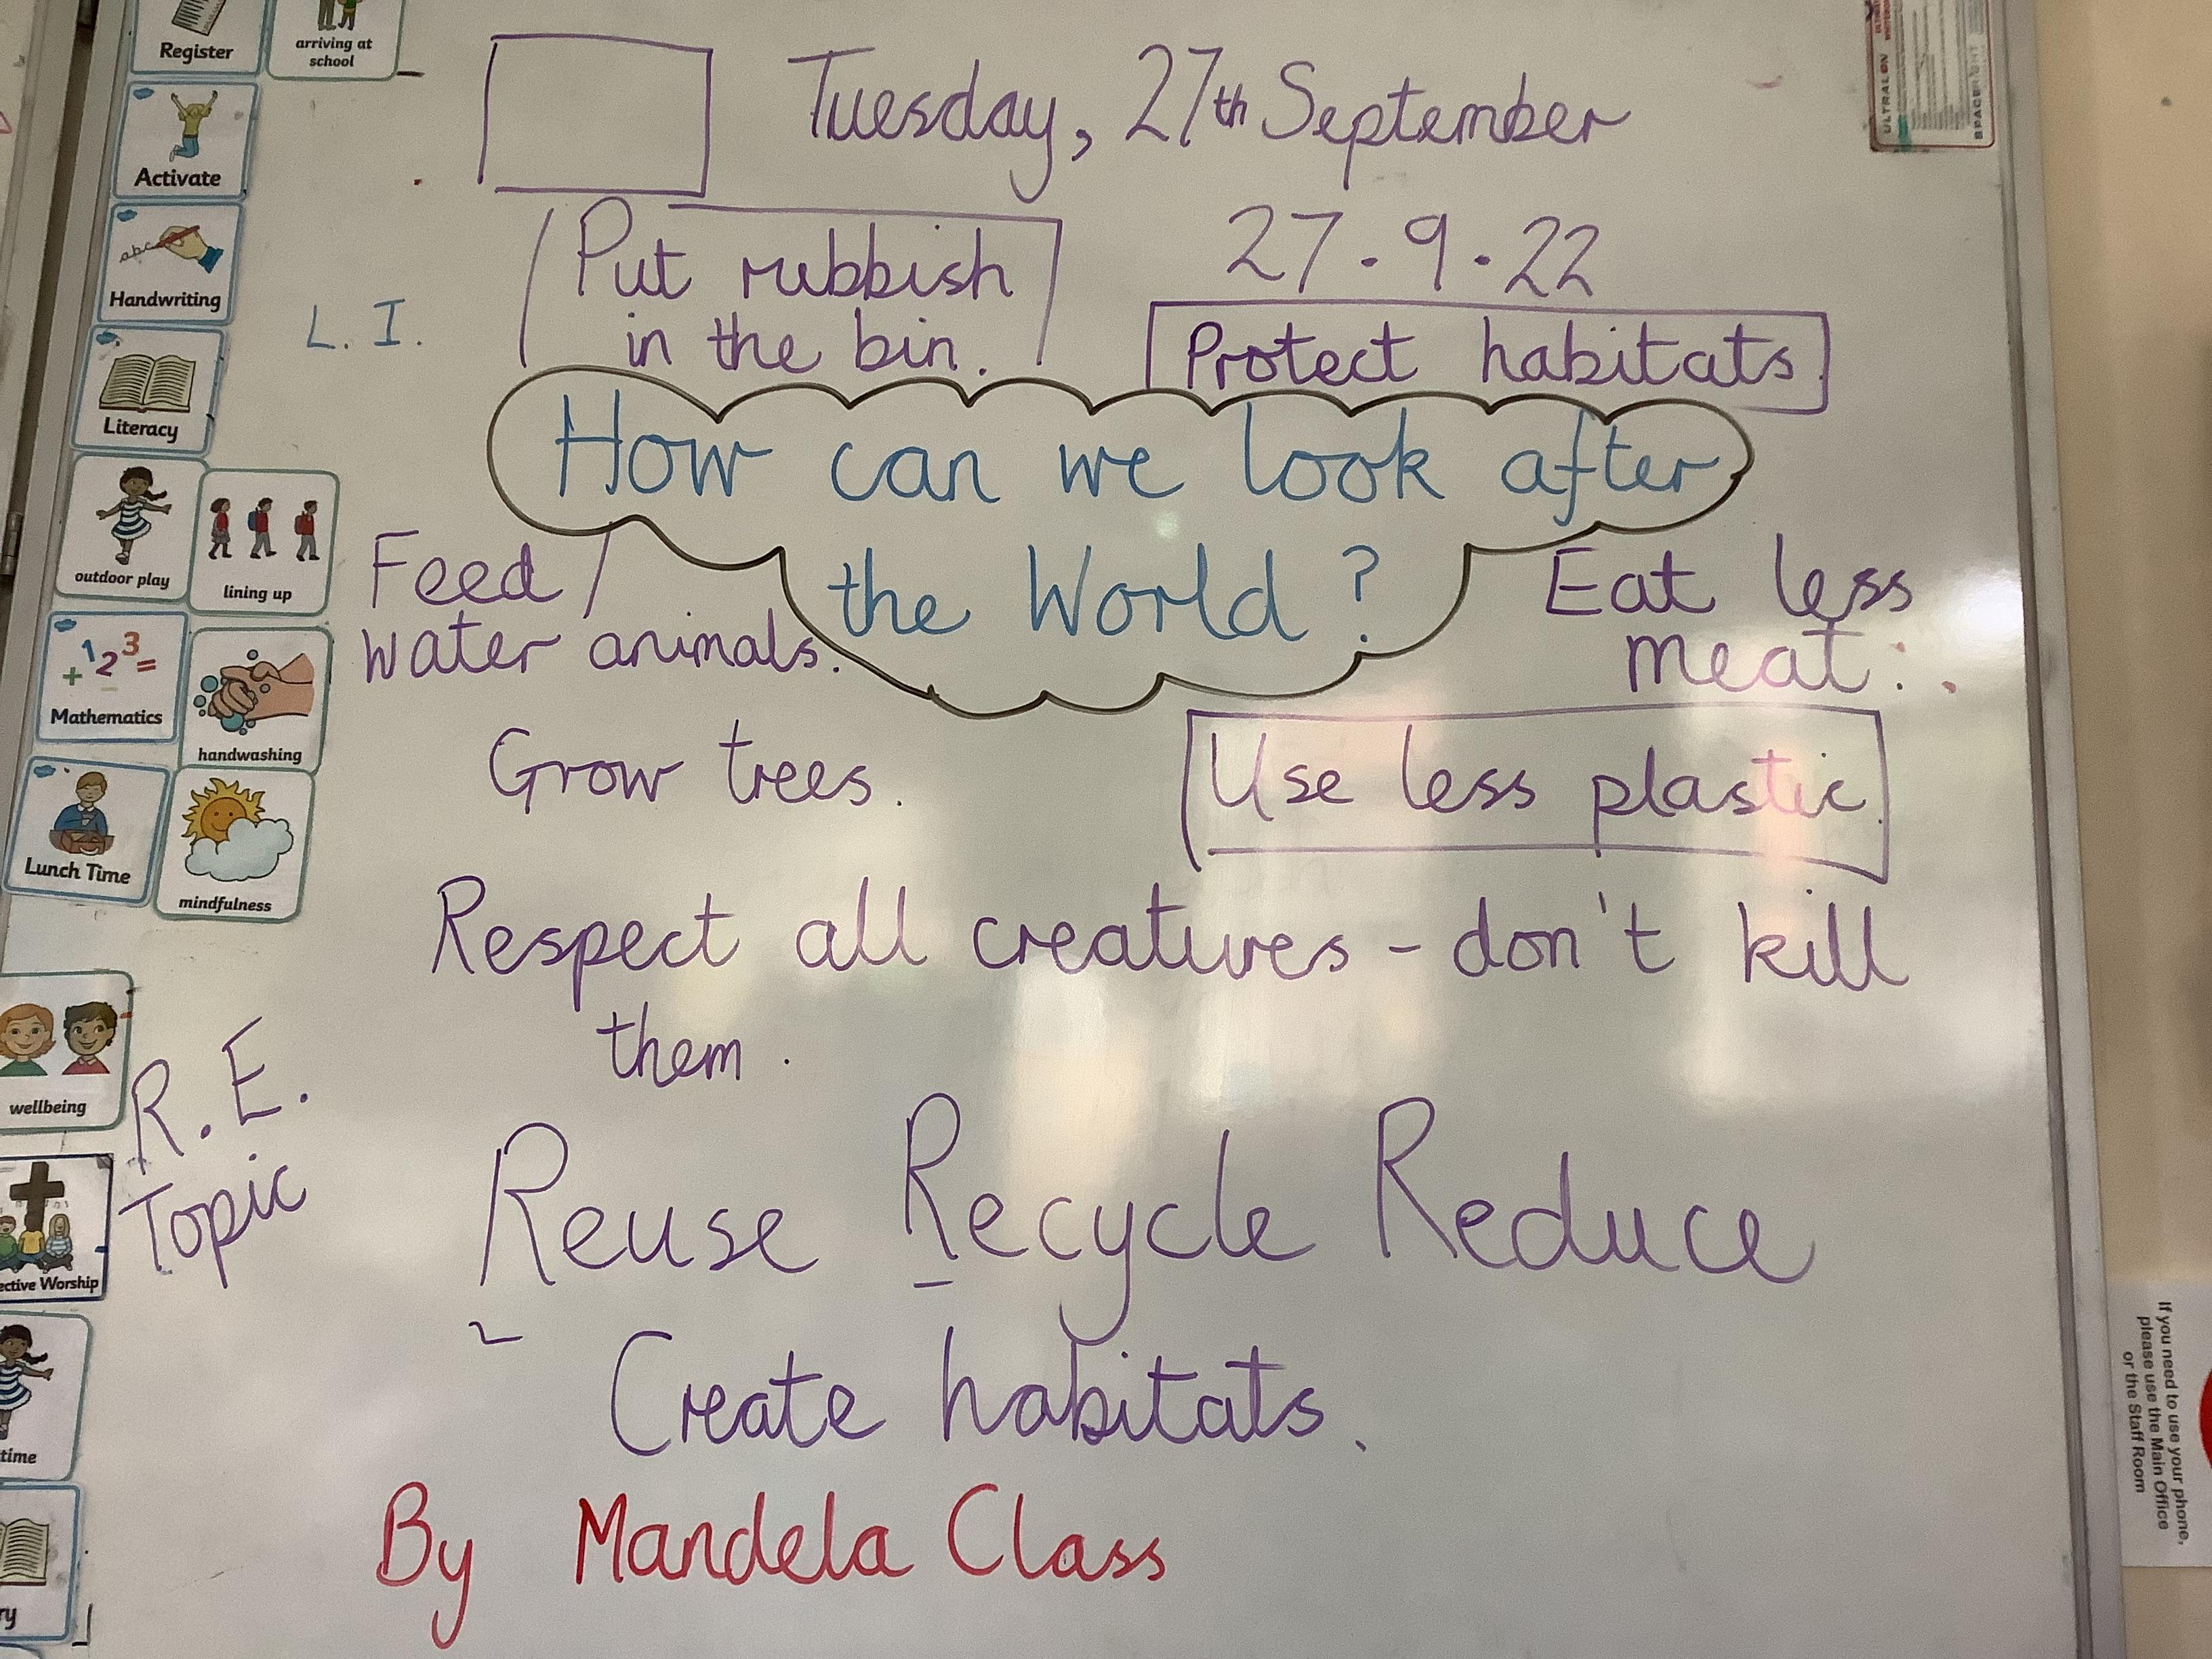 Register
arriving at
school
Activate
abc
Handwriting
Literacy
outdoor play
lining up
+ 1 2 3 =
Mathematics
handwashing
Lunch Time
mindfulness
wellbeing
R.E.
Topic
ective Worship
time
ry
Tuesday, 27th September
27.9.22
L.I.
Put rubbish
in the bin.
Protect habitats.
How can we look after
the World?
Feed /
water animals.
Eat less
meat.
Grow trees.
Use less plastic.
Respect all creatures - don't kill
them.
Reuse Recycle Reduce
Create habitats.
By Mandela Class
ULTRALON
SPACERIGHT
If you need to use your phone,
please use the Main Office
or the Staff Room